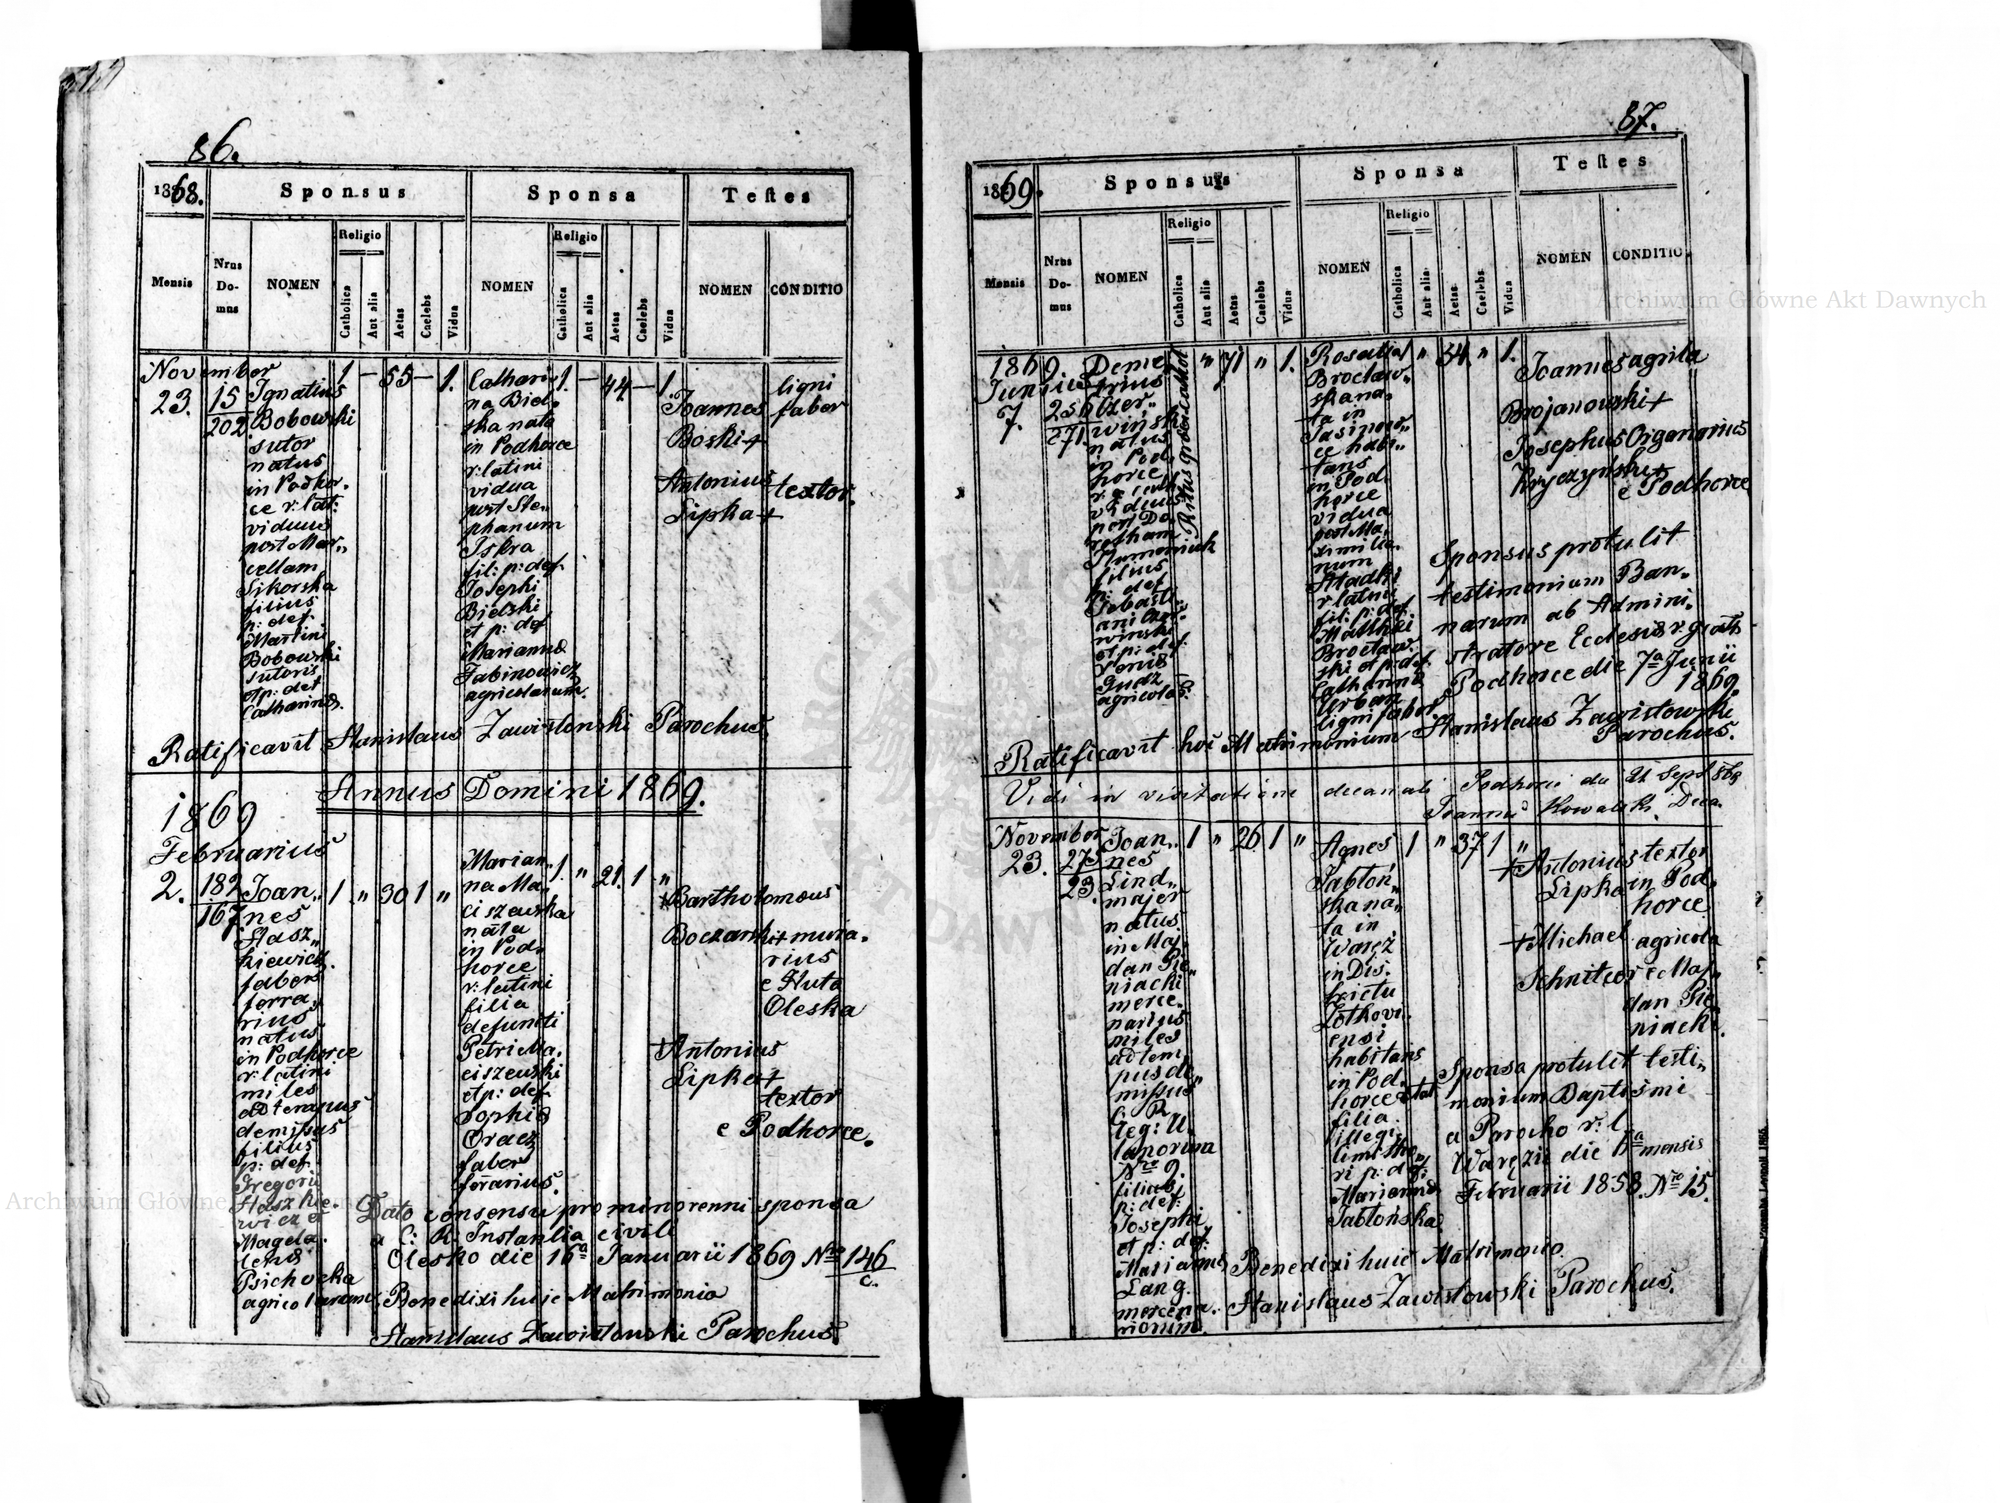 86.
1868.
Sponsus
Sponsa
Teſtes
Mensis
Nrus Domus
NOMEN
Religio
Catholica
Aut alia
Aetas
Caelebs
Vidua
NOMEN
Religio
Catholica
Aut alia
Aetas
Caelebs
Vidua
NOMEN
CONDITIO
November
23.
15
202.
Ignatius
Bobowski
sutor
natus
in Podhor.
ce r: lat:
viduus
post Mar„
cellam
Sikorska
filius
p: def.
Martini
Bobowski
sutoris
et p: def
Catharinæ.
1 — 55 — 1.
Cathari„
na Biel„
ska nata
in Podhorce
r: latini
vidua
post Ste„
phanum
Iskra
fil: p: def
Josephi
Bielski
et p: def
Mariannæ
Fabinowicz
agricolarum.
1. — 44 — 1.
Joannes
Boski +
Antonius
Lipka +
ligni
faber
textor.
Ratificavit Stanislaus Zawistowski Parochus
Annus Domini 1869.
1869
Februarius
2.
182
167
Joan„
nes
Stasz„
kiewicz
faber
ferra„
rius
natus
in Podhorce
r: latini
miles
ad tempus
demissus
filius
p: def
Gregorii
Staszkie.
wicz et
Magda.
lenæ
Psichocka
agricolarum
1 „ 30 1 „
Marian„
na Ma„
ciszewska
nata
in Pod„
horce
r: latini
filia
defuncti
Petri Ma.
ciszewski
et p: def
Sophiæ
Oracz
faber
ferarius.
1. „ 21. 1 „
+Bartholomeus
Boczarski+ mura.
rius
e Huta
Oleska
+Antonius
Lipka+
textor
e Podhorce.
Dato consensu pro minorenni sponsa
a C: R: Instantia civili
Olesko die 16ª Januarii 1869 Nro 146
c.
Benedixi huic Matrimonio
Stanislaus Zawistowski Parochus
87.
1869.
Sponsus
Sponsa
Teſtes
Mensis
Nrus Domus
NOMEN
Religio
Catholica
Aut alia
Aetas
Caelebs
Vidua
NOMEN
Religio
Catholica
Aut alia
Aetas
Caelebs
Vidua
NOMEN
CONDITIO
1869.
Junius
7.
256
271.
Deme„
trius
Czer„
winski
natus
in Pod„
horce
viduus
post Do„
filius
p: def
Sebasti„
ani Czer„
winski
et p: def.
Xeniæ
Gudz
agricolas.
„ 71 „ 1.
Rosalia
Brocław„
ska na„
ta in
ce habi„
tans
in Pod
horce
vidua
post Ma„
ximilia„
num
Stadki
r latini
fil: p: def.
Matthæi
Brocław.
ski et p: def.
Catharinæ
Urban
ligni faber
1 „ 54. „ 1.
Joannes agrila
Brojanowski+
Josephus Organarius
Kryczyński+
e Podhorce
Sponsus protulit
testimonium Ban„
narum ab Admini„
stratore Ecclesiæ r. græc
Podhorce die 7ª Junii
1869.
Ratificavit hoc Matrimonium Stanislaus Zawistowski
Parochus.
Vidi in visitatione decanali Podhorce die 21 Sept 869
Joannes Kowalski Deca.
November
23.
275
23.
Joan„
nes
Lind„
majer
natus
in Maj„
dan Pie„
niacki
merce„
narius
miles
ad tem„
pus de„
missus
C: R:
Reg: U„
lanorum
Nro 9.
filius
p: def.
Josephi
et p: def:
Mariannæ
Lang.
mercena.
riorum.
1 „ 26 1 „
Agnes
Jabłoń„
ska na„
ta in
Waręż
in Dis„
trictu
Żółkovi„
ensi
habitans
in Pod„
horce
filia
illegi„
timi tho„
ri p: def:
Mariannæ
Jabłońska
1 „ 37 1 „
+Antonius textor
Lipka in Pod„
horce
+Michael agricola
Schniteor e Maj„
dan Pie„
niacki.
Sponsa protulit testi„
monium Baptismi
a Parocho r: l
Waręzii die 5ª mensis
Februarii 1858. Nro 15.
Benedixi huic Matrimonio
Stanislaus Zawistowski Parochus.
Archiwum Główne Akt Dawnych
Archiwum Główne Akt Dawnych